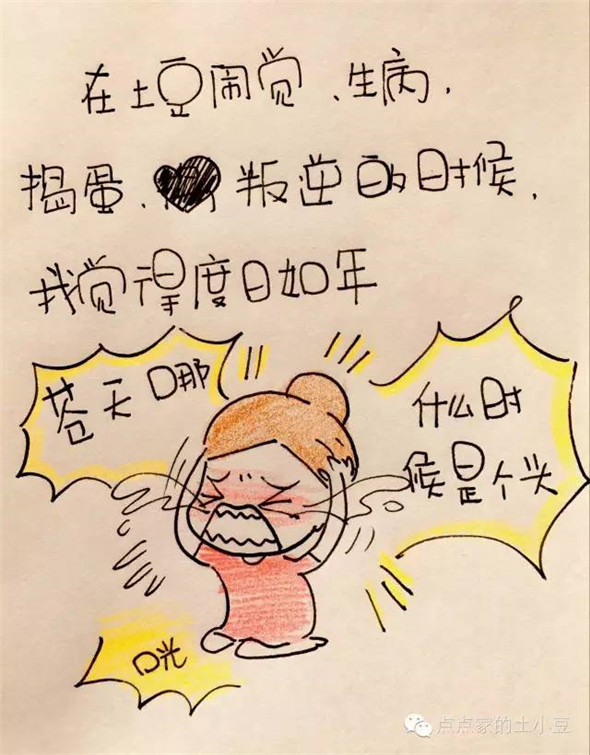 在土豆闹觉、生病，
捣蛋、叛逆的时候，
我觉得度日如年
苍天哪
什么时
候是个头
咣
点点家的土小豆